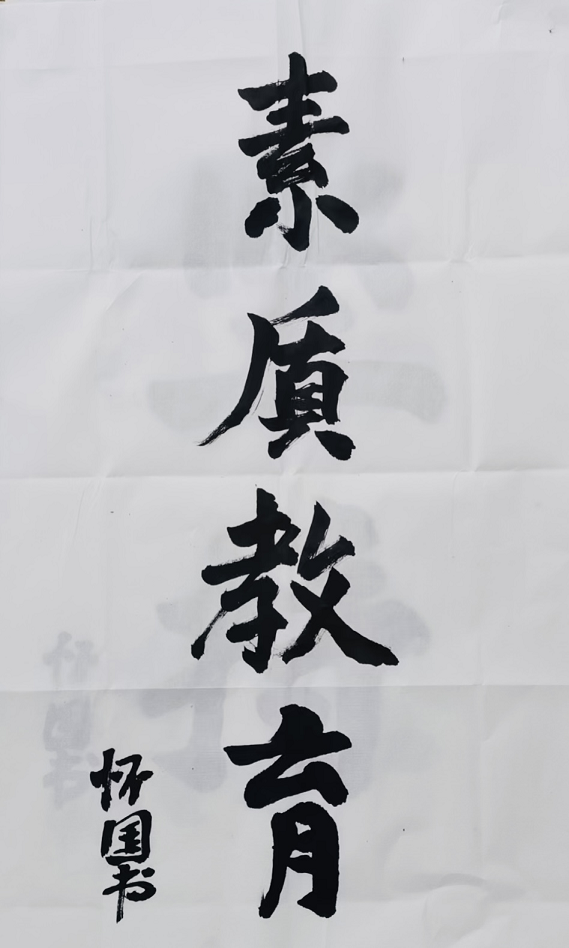 素质教育
怀国书